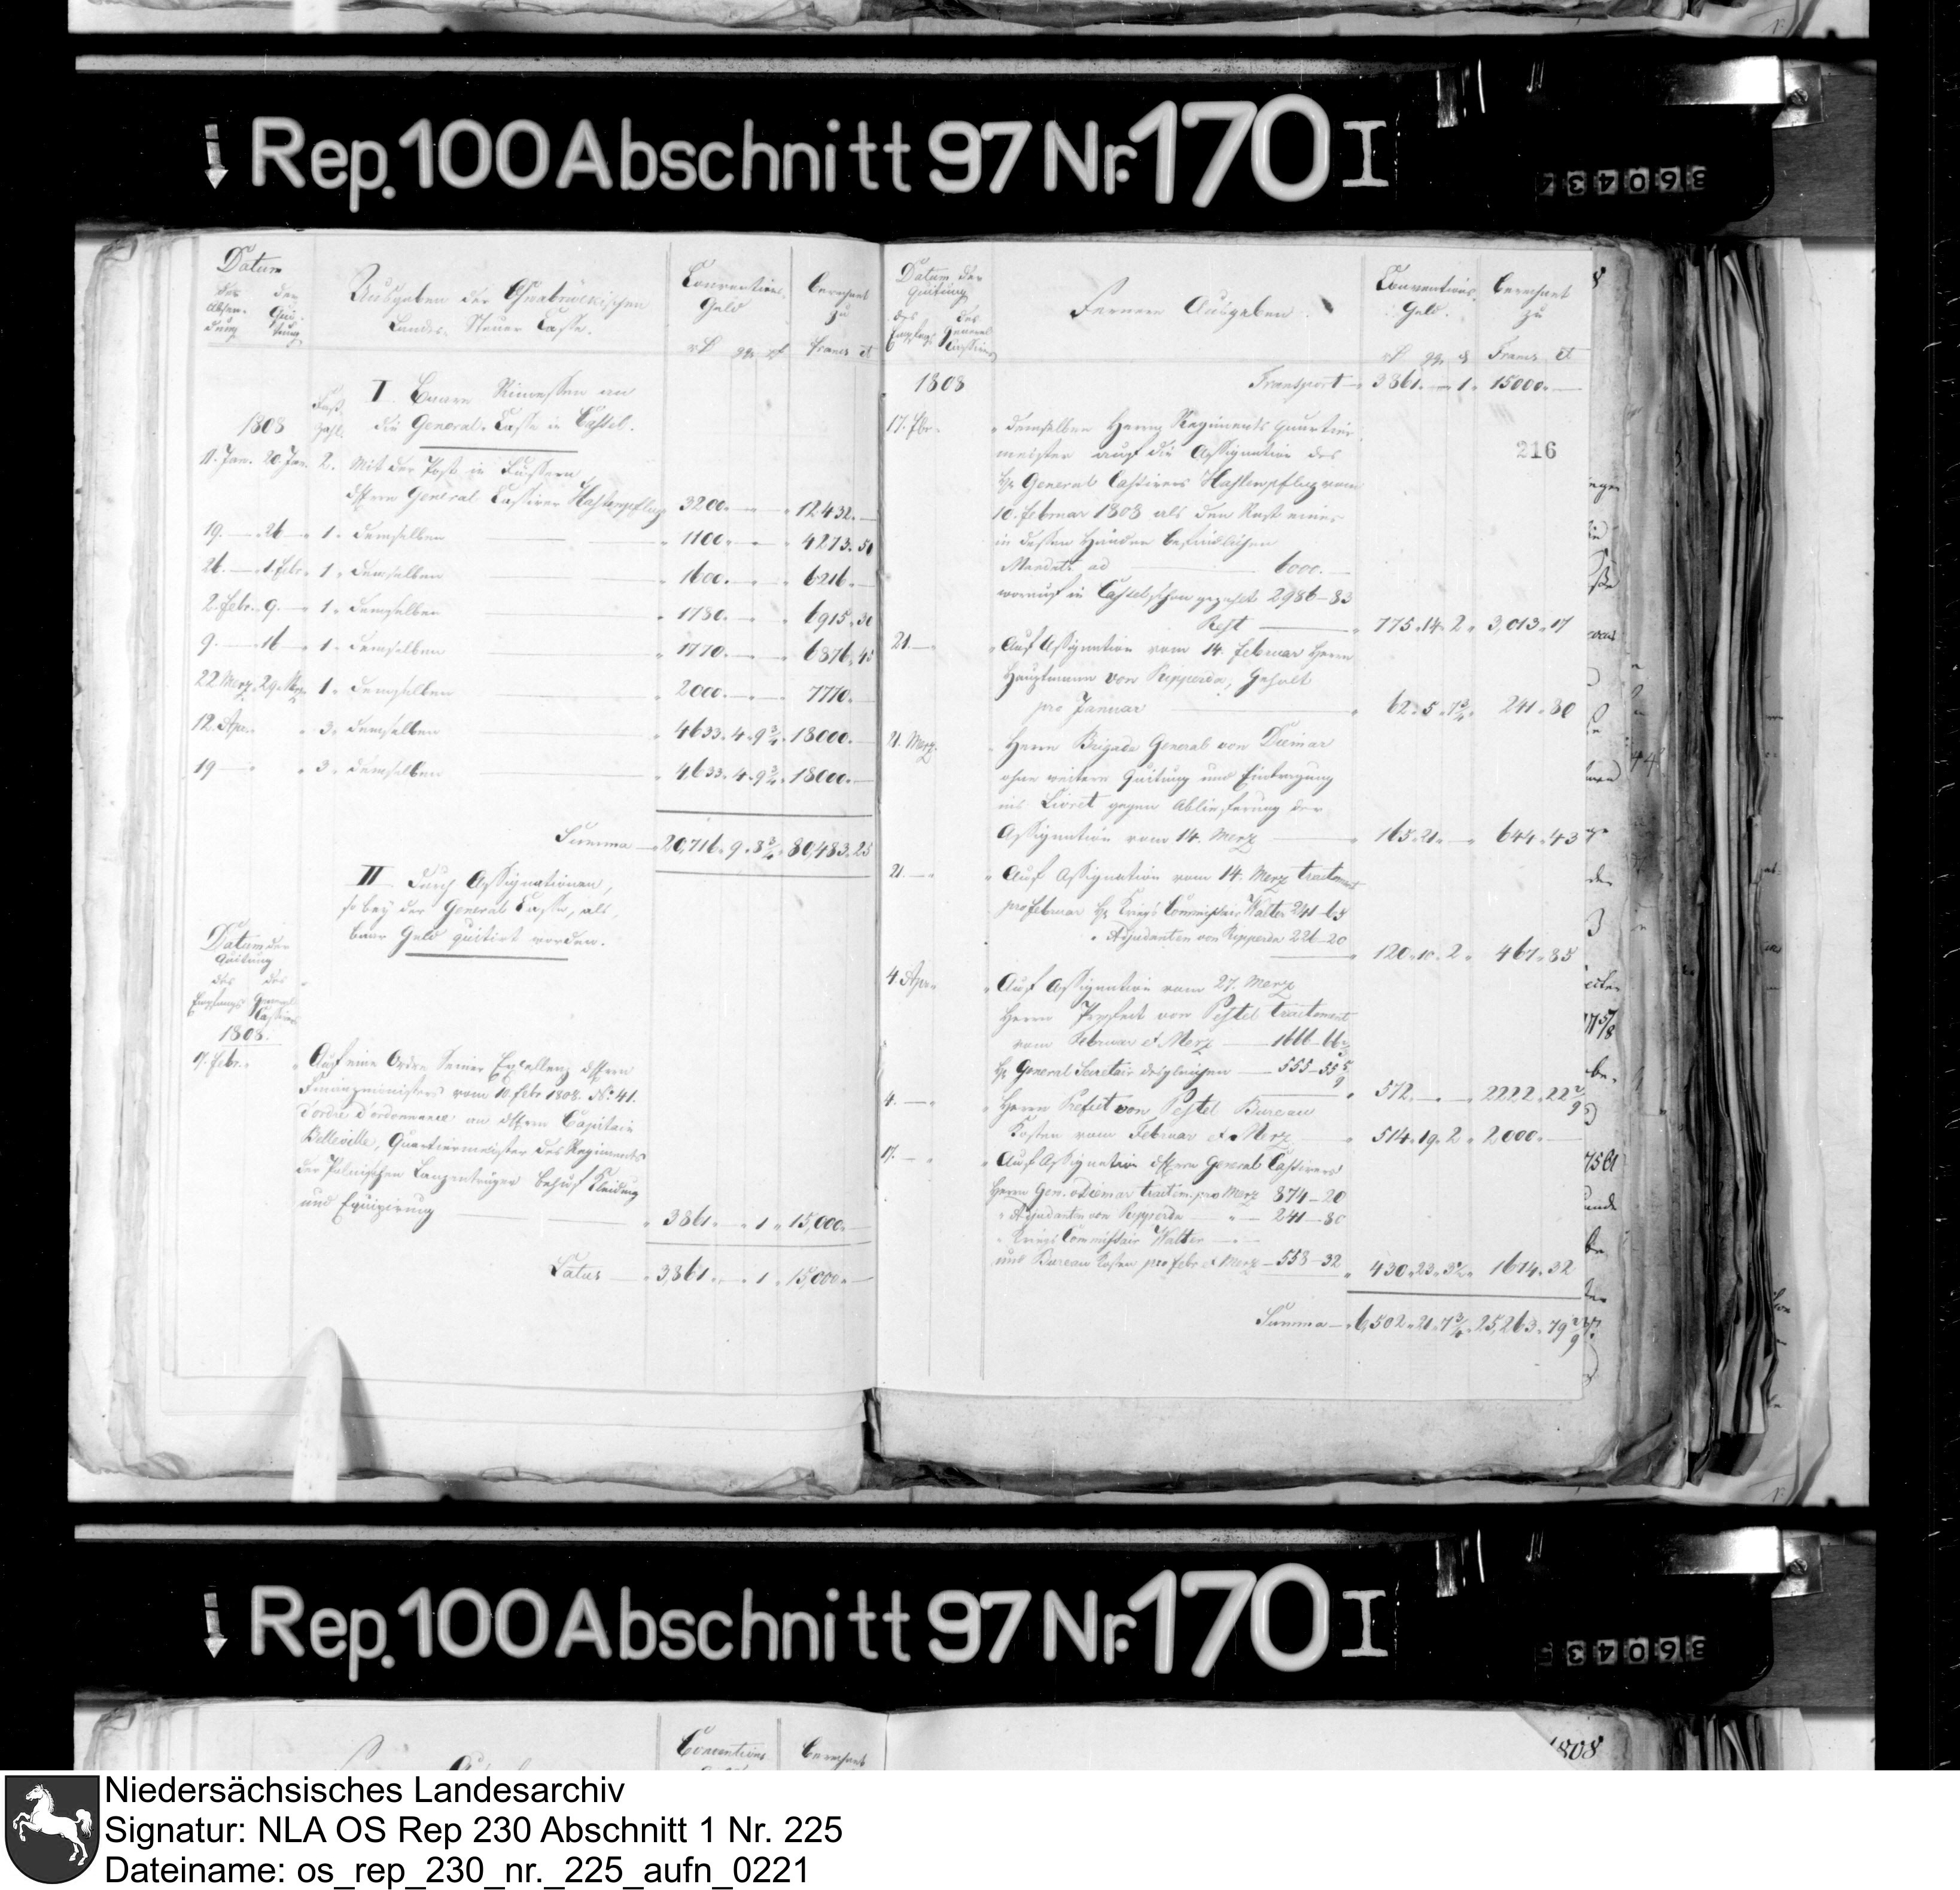 Rep. 100 Abschnitt 97 Nr. 170 I
360434
Datum
des Absen- dung
der Qui- tung
Ausgaben der Osnabrückischen
Landes Steuer Casse.
Conventions Geld
berechnet zu
Francs ct
I Baare Rimessen an
die General Casse in Cassel.
1808
Faß Zahl.
11. Jan. 20. Jan. 2. Mit der Post in Fässern
General Cassirer Hastenpflug 3200. 12432.
19. 26 1. demselben 1100. 4273. 50
26. 1. Febr. 1. demselben 1600. 6216.
2. Febr. 9. 1. demselben 1780. 6915. 30
9. 16 1. demselben 1770. 6876. 45
22 Merz. 29. Merz 1. demselben 2000. 7770.
12. Apr. 3. demselben 4633. 4. 9 3/4. 18000.
19 3. demselben 4633. 4. 9 3/4. 18000.
Summa 20,716. 9. 8 3/4. 80,483. 25
II durch Assignationen,
so bey der General Casse, als
baar Geld quitirt worden.
Datum der
Quitung
des Empfangs
des General Cassirers
1808.
Auf eine Ordre Seiner Excellenz
Finanzministers vom 10. Febr. 1808. No. 41.
d'ordre d'ordonnance an Capitain
Belleville, Quartiermeister des Regiments
der Polnischen Lanzenträger behuf Kleidung
und Equipirung 3861. 1. 15,000.
Latus 3,861. 1. 15,000.
Datum der
Quitung
des Empfangs
des General Cassirers
Fernere Ausgaben.
Conventions Geld.
berechnet zu
Francs ct
1808
Transport 3861. 1. 15000.
216
demselben Herrn Regiments Quartier
meister auf die Assignation des
General Cassirers Hastenpflug vom
10. Februar 1808 als den Rest eines
in dessen Händen befindlichen
Mandats ad 6000.
worauf in Cassel schon gezahlt 2986-83
Rest 775. 14. 2. 3,013. 17
21. Auf Assignation vom 14. Februar Herrn
Hauptmann von Ripperda, Gehalt
pro Januar 62. 5. 7 3/4. 241. 80
21. Merz. Herrn Brigade General von Diemar
ohne weitere Quitung und Eintragung
ins Livret gegen Ablieferung der
Assignation vom 14. Merz 165. 21. 644. 43
21. Auf Assignation vom 14. Merz tractement
pro Februar Kriegs Commissair Walter 241-65
Adjudanten von Ripperda 226-20
120. 10. 2. 467. 85
4. Apr. Auf Assignation vom 27. Merz
Herrn Präfect von Pestel tractement
vom Februar et Merz 1666-66
General Secretair desgleichen 555-55 5/9
572. 2222. 22 2/9
4. Herrn Präfect von Pestel Bureau
Kosten vom Februar et Merz 514. 19. 2. 2000.
17. Auf Assignation General Cassirers
Herrn Gen. v Diemar tractem. pro Merz 874-20
Adjudanten von Ripperda 241-80
Kriegs Commissair Walter
und Bureau Kosten pro Febr et Merz 558-32
430. 23. 1674. 32
Summa 6,502. 21. 7 3/4. 25,263. 79 2/9
Rep. 100 Abschnitt 97 Nr. 170 I
360435
Conventions
berechnet
1808
Niedersächsisches Landesarchiv
Signatur: NLA OS Rep 230 Abschnitt 1 Nr. 225
Dateiname: os_rep_230_nr._225_aufn_0221